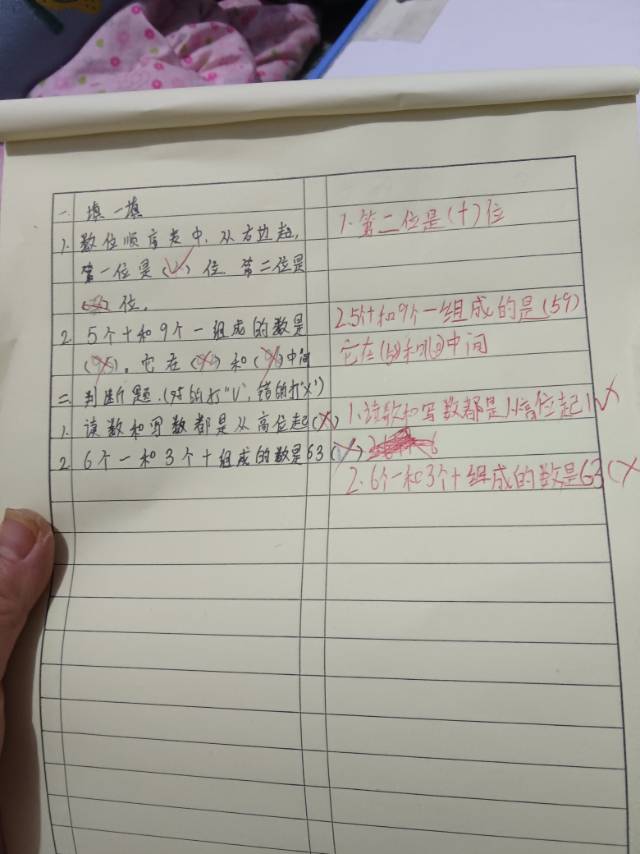 一. 填一填
1. 数位顺序表中, 从右边起,
第一位是( )位 第二位是
位.
2. 5个十和9个一组成的数是
( ). 它在( )和( )中间
二. 判断题.(对的打"√", 错的打"×")
1. 读数和写数都是从高位起(×)
2. 6个一和3个十组成的数是63( )
1. 第二位是(十)位
2. 5个十和9个一组成的是(59)
它在(58)和( )中间
1. 读数和写数都是从高位起
2. 6个一和3个十组成的数是63(×